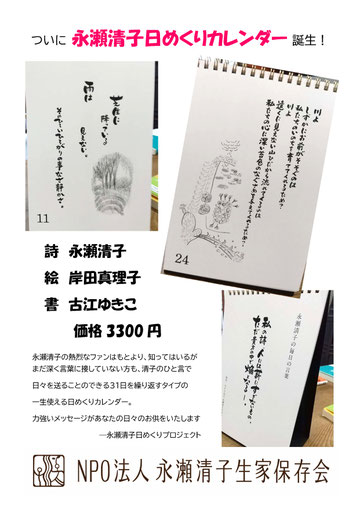 ついに 永瀬清子日めくりカレンダー 誕生！
芝生に
降っている
雨は
見えない。
11
川よ
しずかにお前がそそぐのは
私たちのいのちを育ててくれるため?
川よ
遠くに見えない山ひだから流れてくるのは
24
詩 永瀬清子
絵 岸田真理子
書 古江ゆきこ
価格 3300 円
永瀬清子の毎日の言葉
永瀬清子の熱烈なファンはもとより、知ってはいるが
まだ深く言葉に接していない方も、詩のひと言で
日々を送ることのできる31日を繰り返すタイプの
一生使える日めくりカレンダー。
力強いメッセージがあなたの日々のお供をいたします
―永瀬清子日めくりプロジェクト
NPO法人 永瀬清子生家保存会